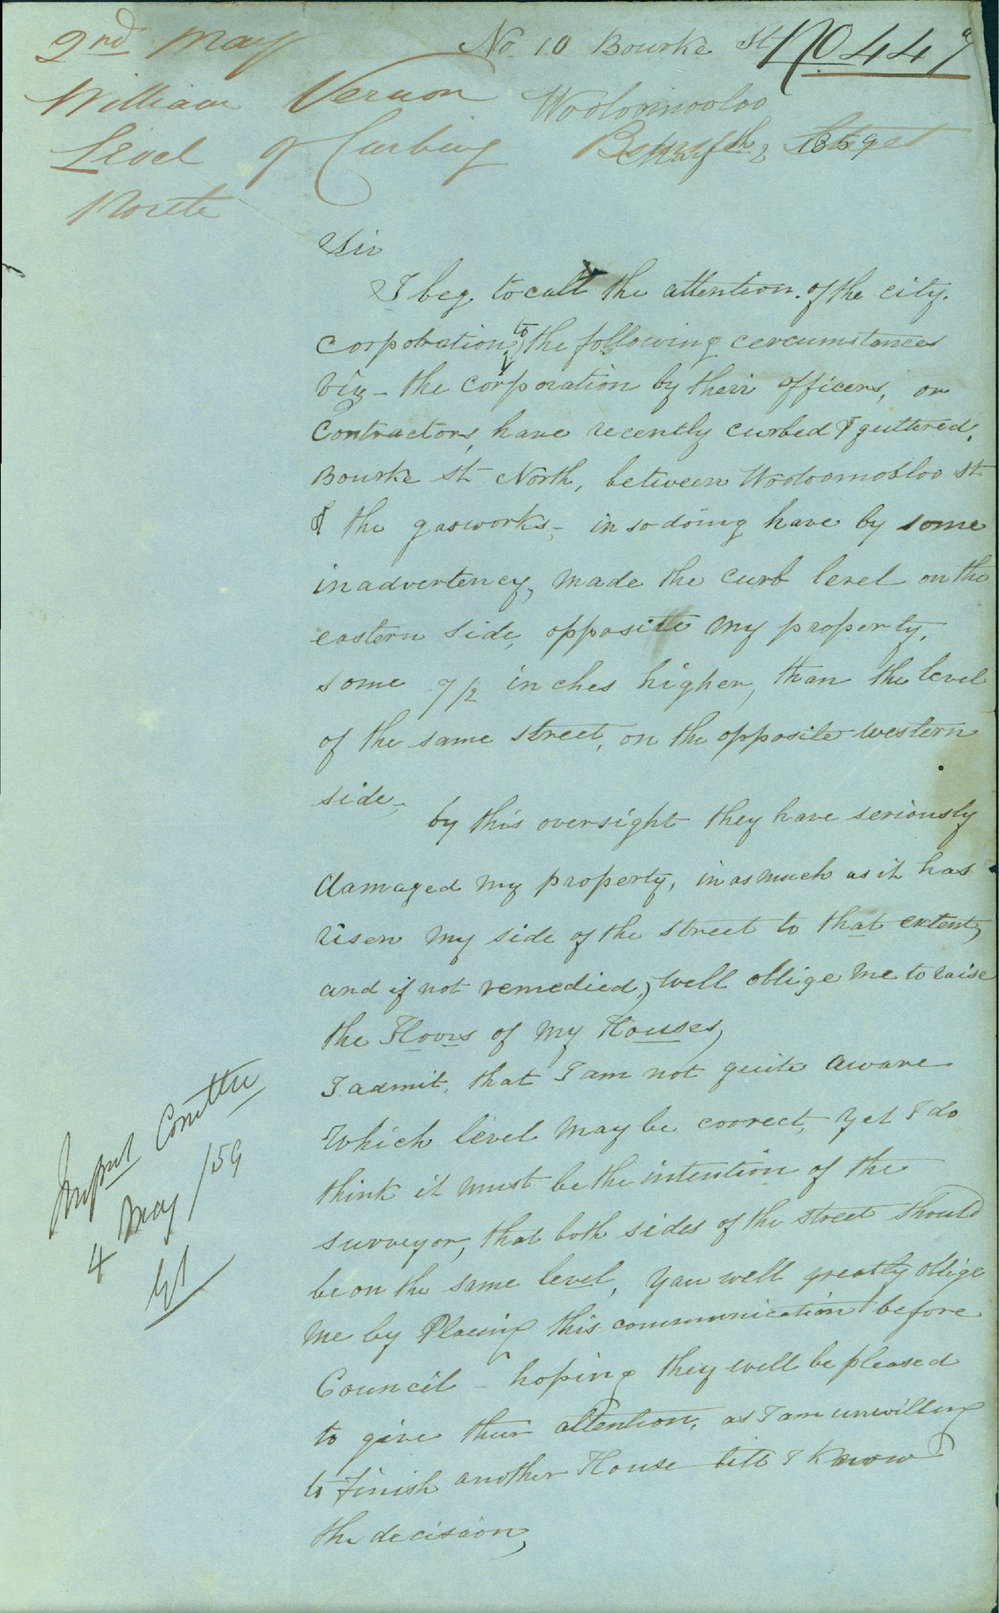 2nd May
William Vernon
Level of Curbing Bourke Street
North
No 10 Bourke St
No 449
Wooloomooloo
May 2 1859
Sir
I beg to call the attention of the city
corporation to the following cercumstances
viz - the corporation by their officers, or
Contractors, have recently curbed & guttered,
Bourke St North, between Wooloomooloo St
& the gasworks, - in so doing have by some
inadvertency, made the curb level on the
eastern side, opposite my property,
some 7½ inches higher, than the level
of the same street, on the opposite western
side,
by this oversight they have seriously
damaged my property, in as much as it has
risen my side of the street to that extent,
and if not remedied, well oblige me to raise
the Floors of my Houses,
I admit, that I am not quite aware
Which level may be correct, yet I do
think it must be the intention of the
surveyor, that both sides of the street should
be on the same level, you well greatly oblige
me by Placing this communication before
Council - hoping they well be pleased
to give their attention, as I am unwilling
to Finish another House till I know
the decision,
Improt Comttee
4 May /59